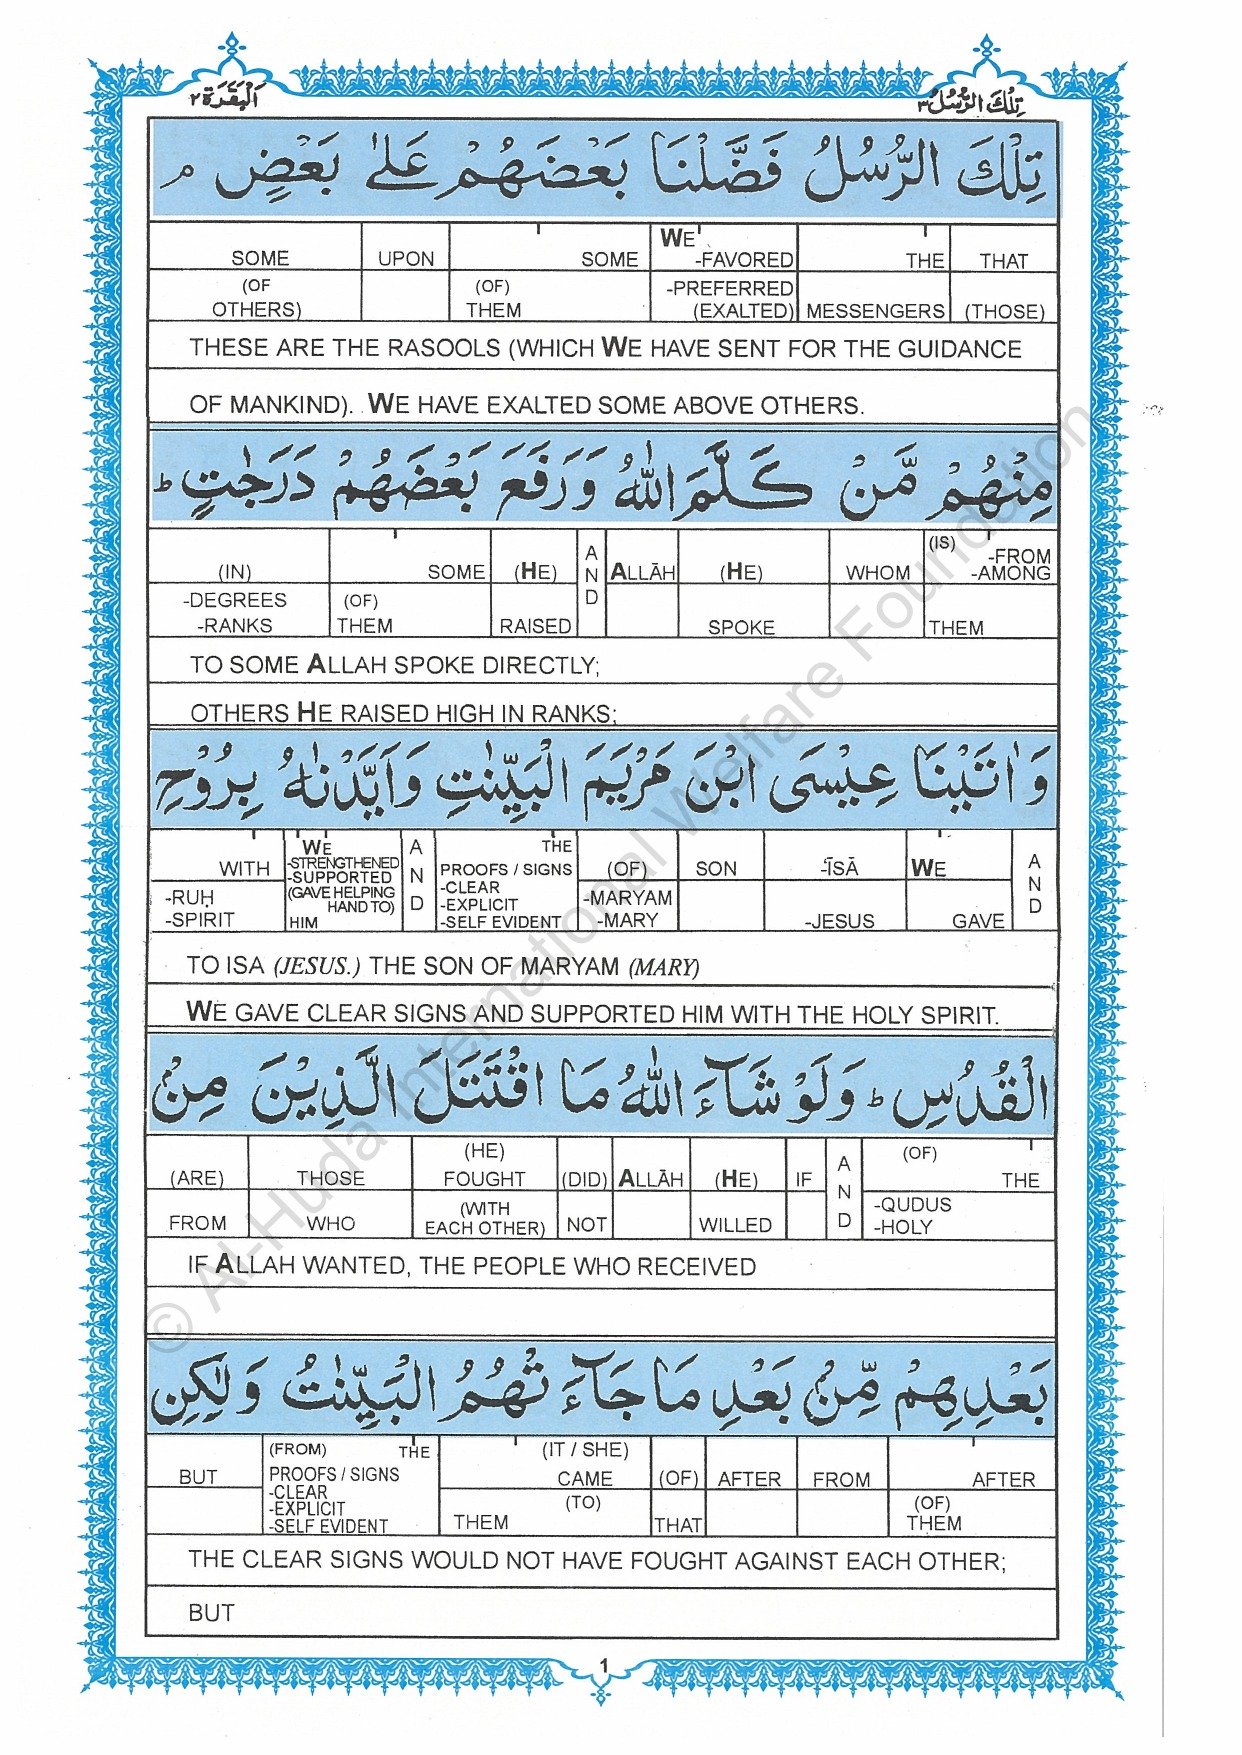 اَلْبَقَرَة ٢
تِلْكَ الرُّسُلُ ٣
تِلْكَ الرُّسُلُ فَضَّلْنَا بَعْضَهُمْ عَلٰى بَعْضٍ ۘ
SOME UPON SOME WE -FAVORED THE THAT
(OF OTHERS) (OF) THEM -PREFERRED (EXALTED) MESSENGERS (THOSE)
THESE ARE THE RASOOLS (WHICH WE HAVE SENT FOR THE GUIDANCE
OF MANKIND). WE HAVE EXALTED SOME ABOVE OTHERS.
مِنْهُمْ مَّنْ كَلَّمَ اللّٰهُ وَرَفَعَ بَعْضَهُمْ دَرَجٰتٍ ؕ
(IN) SOME (HE) AND ALLĀH (HE) WHOM (IS) -FROM -AMONG
-DEGREES -RANKS (OF) THEM RAISED SPOKE THEM
TO SOME ALLAH SPOKE DIRECTLY;
OTHERS HE RAISED HIGH IN RANKS;
وَاٰتَيْنَا عِيْسَى ابْنَ مَرْيَمَ الْبَيِّنٰتِ وَاَيَّدْنٰهُ بِرُوْحِ
WITH WE -STRENGTHENED -SUPPORTED (GAVE HELPING HAND TO) HIM AND THE PROOFS / SIGNS -CLEAR -EXPLICIT -SELF EVIDENT (OF) SON -ĪSĀ WE AND
-RUḤ -SPIRIT -MARYAM -MARY -JESUS GAVE
TO ISA (JESUS.) THE SON OF MARYAM (MARY)
WE GAVE CLEAR SIGNS AND SUPPORTED HIM WITH THE HOLY SPIRIT.
الْقُدُسِ ؕ وَلَوْ شَآءَ اللّٰهُ مَا اقْتَتَلَ الَّذِيْنَ مِنْۢ
(ARE) THOSE (HE) FOUGHT (DID) ALLĀH (HE) IF AND (OF) THE
FROM WHO (WITH EACH OTHER) NOT WILLED -QUDUS -HOLY
IF ALLAH WANTED, THE PEOPLE WHO RECEIVED
بَعْدِهِمْ مِّنْۢ بَعْدِ مَا جَآءَتْهُمُ الْبَيِّنٰتُ وَلٰكِنِ
BUT (FROM) THE PROOFS / SIGNS -CLEAR -EXPLICIT -SELF EVIDENT (IT / SHE) CAME (OF) AFTER FROM AFTER
THEM (TO) THAT (OF) THEM
THE CLEAR SIGNS WOULD NOT HAVE FOUGHT AGAINST EACH OTHER;
BUT
1
© Al-Huda International Welfare Foundation